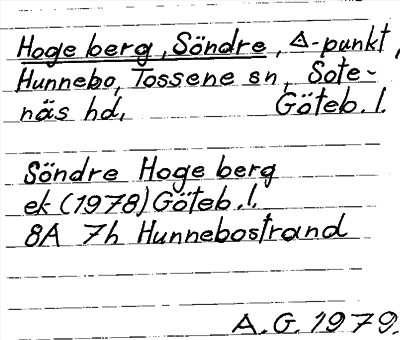 Hoge berg, Söndre, △-punkt,
Hunnebo, Tossene sn, Sote-
näs hd, Göteb. l.
Söndre Hoge berg
ek (1978) Göteb. l.
8A 7h Hunnebostrand
A. G. 1979.